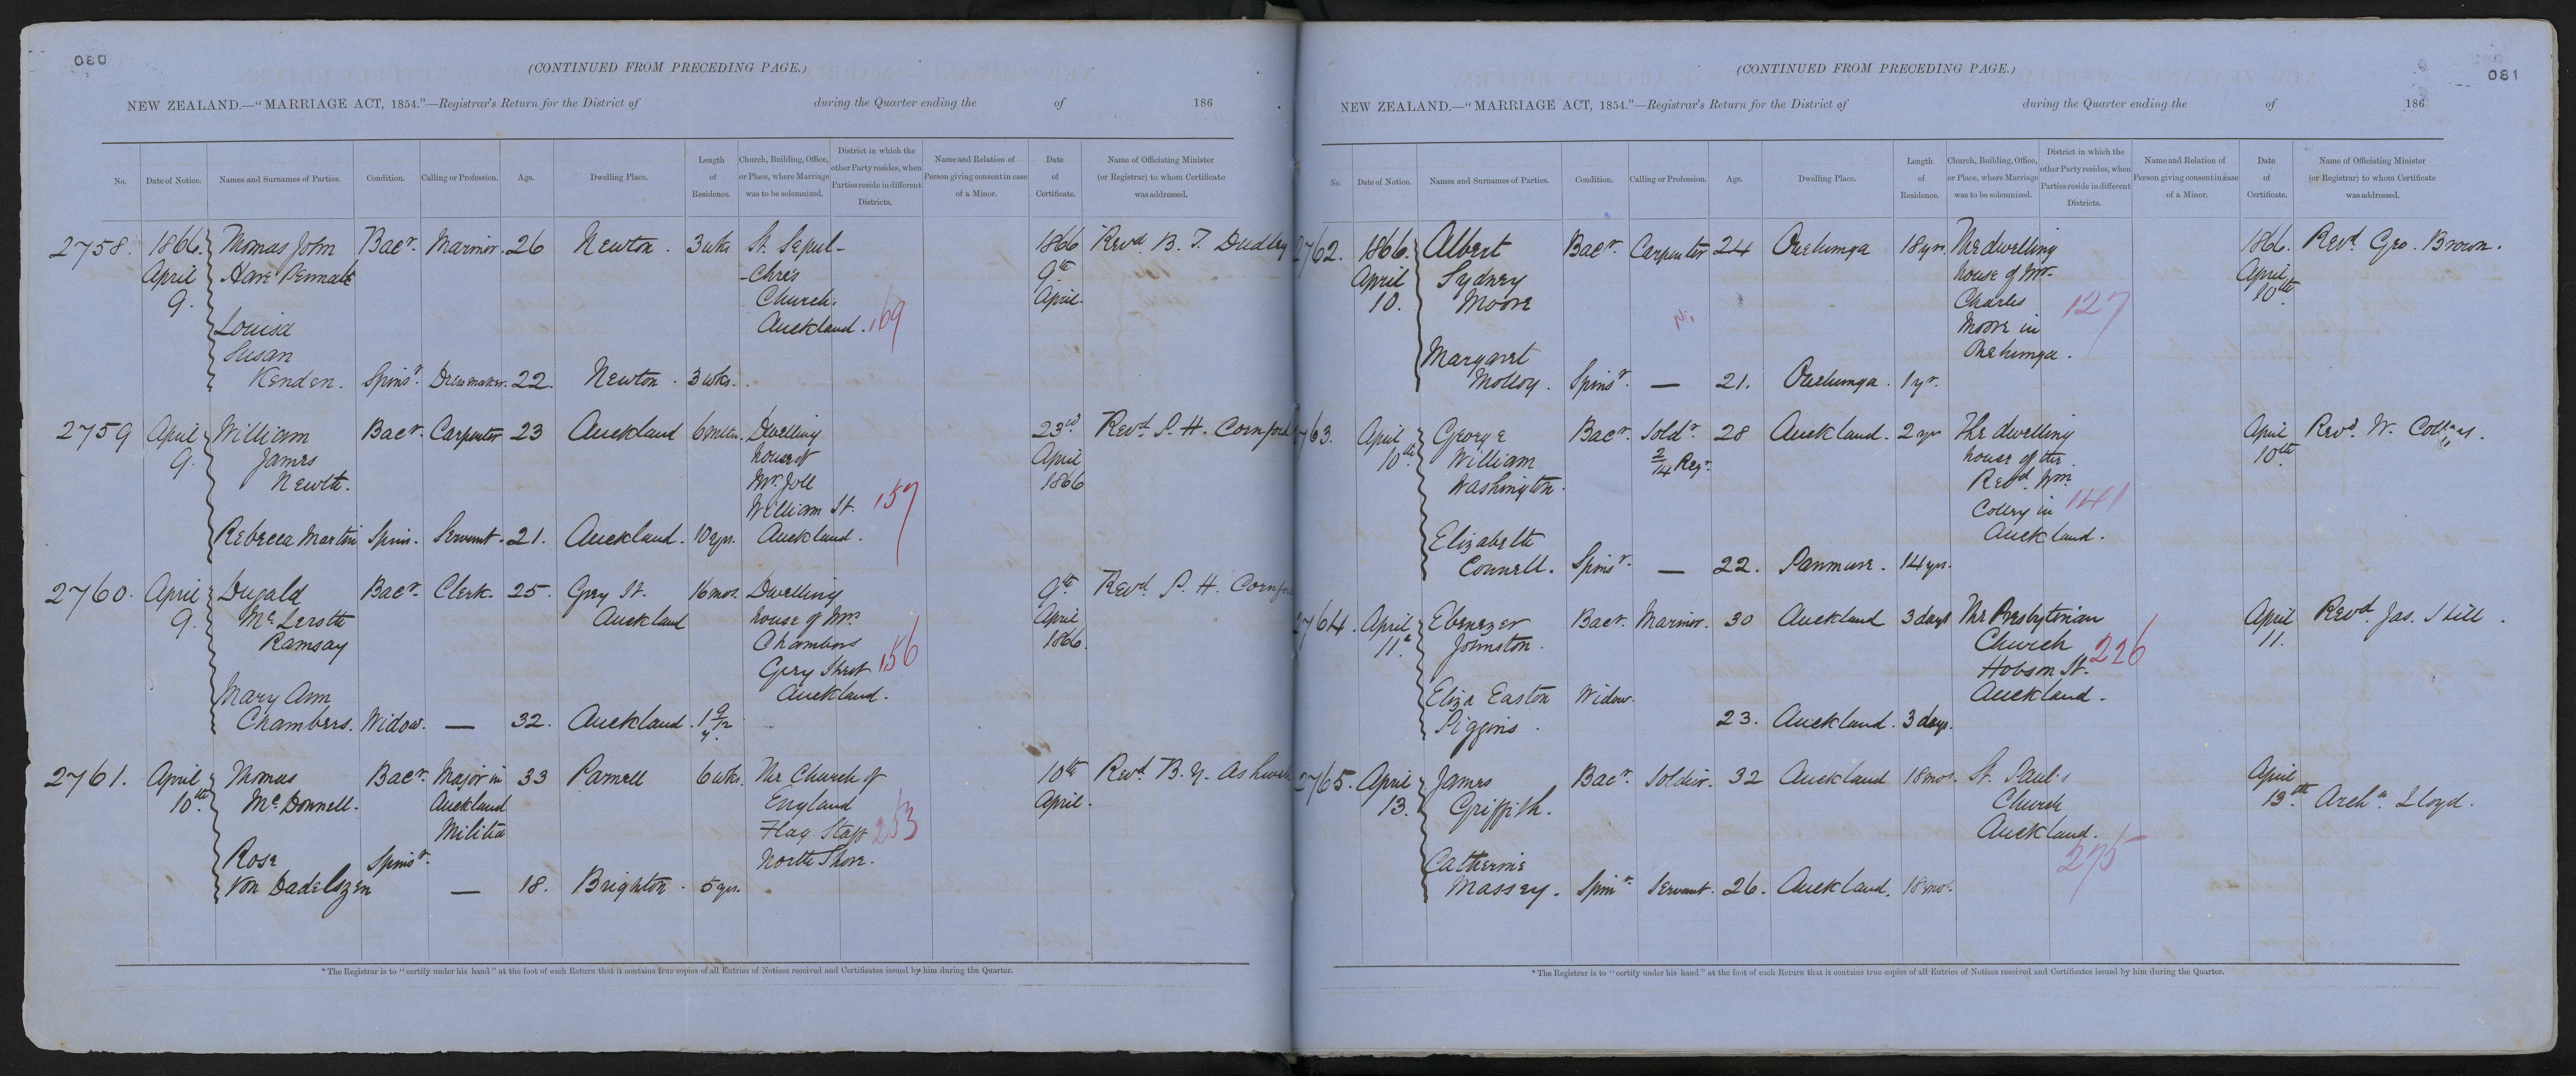 080
(CONTINUED FROM PRECEDING PAGE.)
NEW ZEALAND.—"MARRIAGE ACT, 1854."—Registrar's Return for the District of during the Quarter ending the of 186
No. Date of Notice. Names and Surnames of Parties. Condition. Calling or Profession. Age. Dwelling Place. Length of Residence. Church, Building, Office, or Place, where Marriage was to be solemnized. District in which the other Party resides, when Parties reside in different Districts. Name and Relation of Person giving consent in case of a Minor. Date of Certificate. Name of Officiating Minister (or Registrar) to whom Certificate was addressed.
2758. 1866. Thomas John Bacr. Marinr. 26 Newton. 3 wks St. Sepul- 1866 Revd. B. T. Dudley
April Hare -chre's 9th
9. Church. April.
Louisa Auckland. 169
Susan
Kenden. Spinsr. Dressmaker. 22. Newton. 3 wks.
2759 April William Bacr. Carpenter 23 Auckland 6 mths. Dwelling 23rd Revd. P. H. Cornford
9. James house of April
Newth. Mr. Joll 1866
William St. 157
Rebecca Martin Spin. Servant. 21. Auckland. 10 yrs. Auckland.
2760. April Dugald Bacr. Clerk. 25. Grey St. 16 mos. Dwelling 9th Revd. P. H.
9. Auckland house of Mrs. April
Ramsay Chambers 1866.
Grey Street 156
Mary Ann Auckland.
Chambers. Widow. — 32. Auckland. 1 9/12 y.
2761. April Thomas Bacr. Major in 33 Parnell 6 wks. The Church of 10th Revd. B. Y.
10th. McDonnell. Auckland England April.
Militia Flag Staff 253
Rose Spinsr. North Shore.
Von Dadelszen — 18. Brighton. 5 yrs.
* The Registrar is to "certify under his hand" at the foot of each Return that it contains true copies of all Entries of Notices received and Certificates issued by him during the Quarter.
081
(CONTINUED FROM PRECEDING PAGE.)
NEW ZEALAND.—"MARRIAGE ACT, 1854."—Registrar's Return for the District of during the Quarter ending the of 186
No. Date of Notice. Names and Surnames of Parties. Condition. Calling or Profession. Age. Dwelling Place. Length of Residence. Church, Building, Office, or Place, where Marriage was to be solemnized. District in which the other Party resides, when Parties reside in different Districts. Name and Relation of Person giving consent in case of a Minor. Date of Certificate. Name of Officiating Minister (or Registrar) to whom Certificate was addressed.
2762. 1866. Albert Bacr. Carpenter 24 Onehunga 18 yrs. The dwelling 1866. Revd. Geo. Brown.
April Sydney house of Mr. April
10. Moore Charles 127 10th.
Moore in
Margaret Onehunga.
Molloy. Spinsr. — 21. Onehunga. 1 yr.
763. April George Bacr. Soldr. 28 Auckland. 2 yrs The dwelling April Revd. W.
10th. William 2/14 Regt. house of the 10th.
Washington. Revd. Wm.
in 141
Elizabeth Auckland.
Connell. Spinsr. — 22. Panmure. 14 yrs.
2764. April Ebenezer Bacr. Marinr. 30 Auckland 3 days The Presbyterian April Revd. Jas. Hill.
11th. Johnston. Church 226 11.
Hobson St.
Eliza Easton Widow. Auckland.
Piggins. 23. Auckland. 3 days.
2765. April James Bacr. Soldier. 32 Auckland 18 mos. St. Paul's April
13. Griffith. Church 13th. Archn. Lloyd.
Auckland.
Catherine 275
Massey. Spinr. Servant. 26. Auckland. 18 mos.
* The Registrar is to "certify under his hand" at the foot of each Return that it contains true copies of all Entries of Notices received and Certificates issued by him during the Quarter.